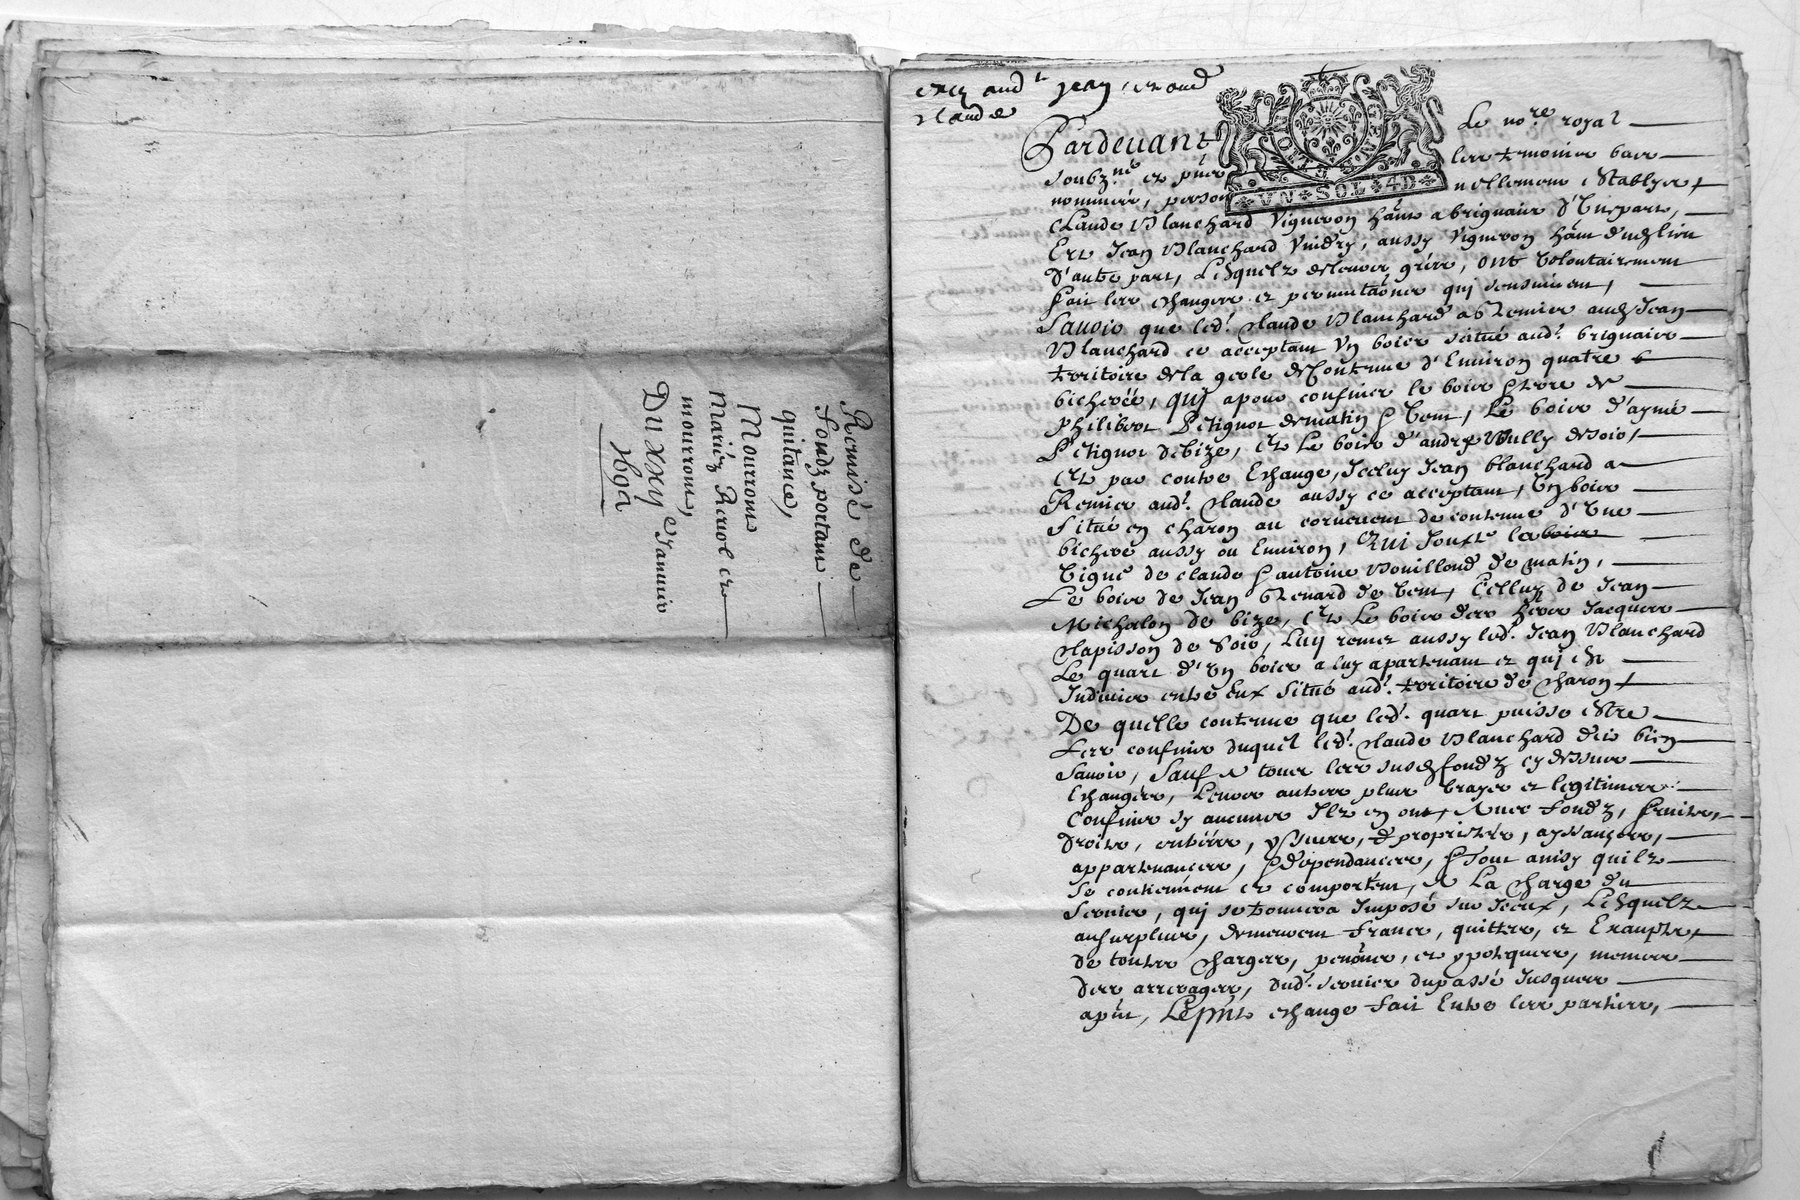 Remise de
fondz portant
quitance,
Mourront
mariéz Reriol et
mourront,
Du xxy e Januier
1692
aud t Jean
Claude
GENE
VN SOL 4D
Pardeuant Le no.re royal
soubz.né et pñts les temoins bas
nommés, personnellement Establys
Claude Blanchard Vigneron hânt a brignais d'Vnepart,
Et Jean Blanchard aussy Vigneron hânt dud lieu
d'autre part, Lesquelz de leurs grés, ont Volontairement
fait les Changes et permutaõnes qui sensuiuent,
Sauoir que led.t Claude Blanchard a Remis aud Jean
Blanchard ce acceptant Vn bois scitué aud.t brignais
territoire de la gole de Contenue d'Enuiron quatre
bicherée, quj a pour confins le bois & terre de
philibert Petignot de matin & Vent, Le bois d'aymé
Petignot de bize, Et Le bois d'andre Vully de soir,
Et par contre Eschange, Iceluy Jean blanchard a
Remis aud.t Claude aussy ce acceptant, Vn bois
Situé en charon au cornouent de contenue d'Vne
bicherée aussy ou Enuiron, Qui Jouxte la bois
Vigne de claude & antoine Bouillond de matin,
Le bois de Jean Benard de Vent, Celluy de Jean
Michalon de bize, Et Le bois des Jacques
Clapisson de Soir, Luy remet aussy led.t Jean Blanchard
Le quart d'Vn bois a luy apartenant et quj est
Indiuis entre Eux Situé aud.t territoire de Charon,
De quelle contenue que led.t quart puisse Estre
Les confins duquel led.t Claude Blanchard dit bien
Sauoir, Sauf a tous les susd fondz cy dessus
Eschangés, Leurs autres plus Vrayes et legitimes
Confins sy aucuns Ilz en ont, Auec fondz, fruits,
droits, entrées, yssues, & proprietés, ayssances,
appartenances, & dépendances, & Tout ainsy quilz
Se contiennent et comportent, A La Charge du
Seruis, quj se trouuera Imposé sur Iceux, Lesquelz
au surplus, demeurent francs, quittes, et Exampts,
de toutes Charges, penõnes, et ypoteques, mesmes
des arrerages, dud.t seruis du passé Jusques
a pñt, Le pñt eschange fait Entre les parties,